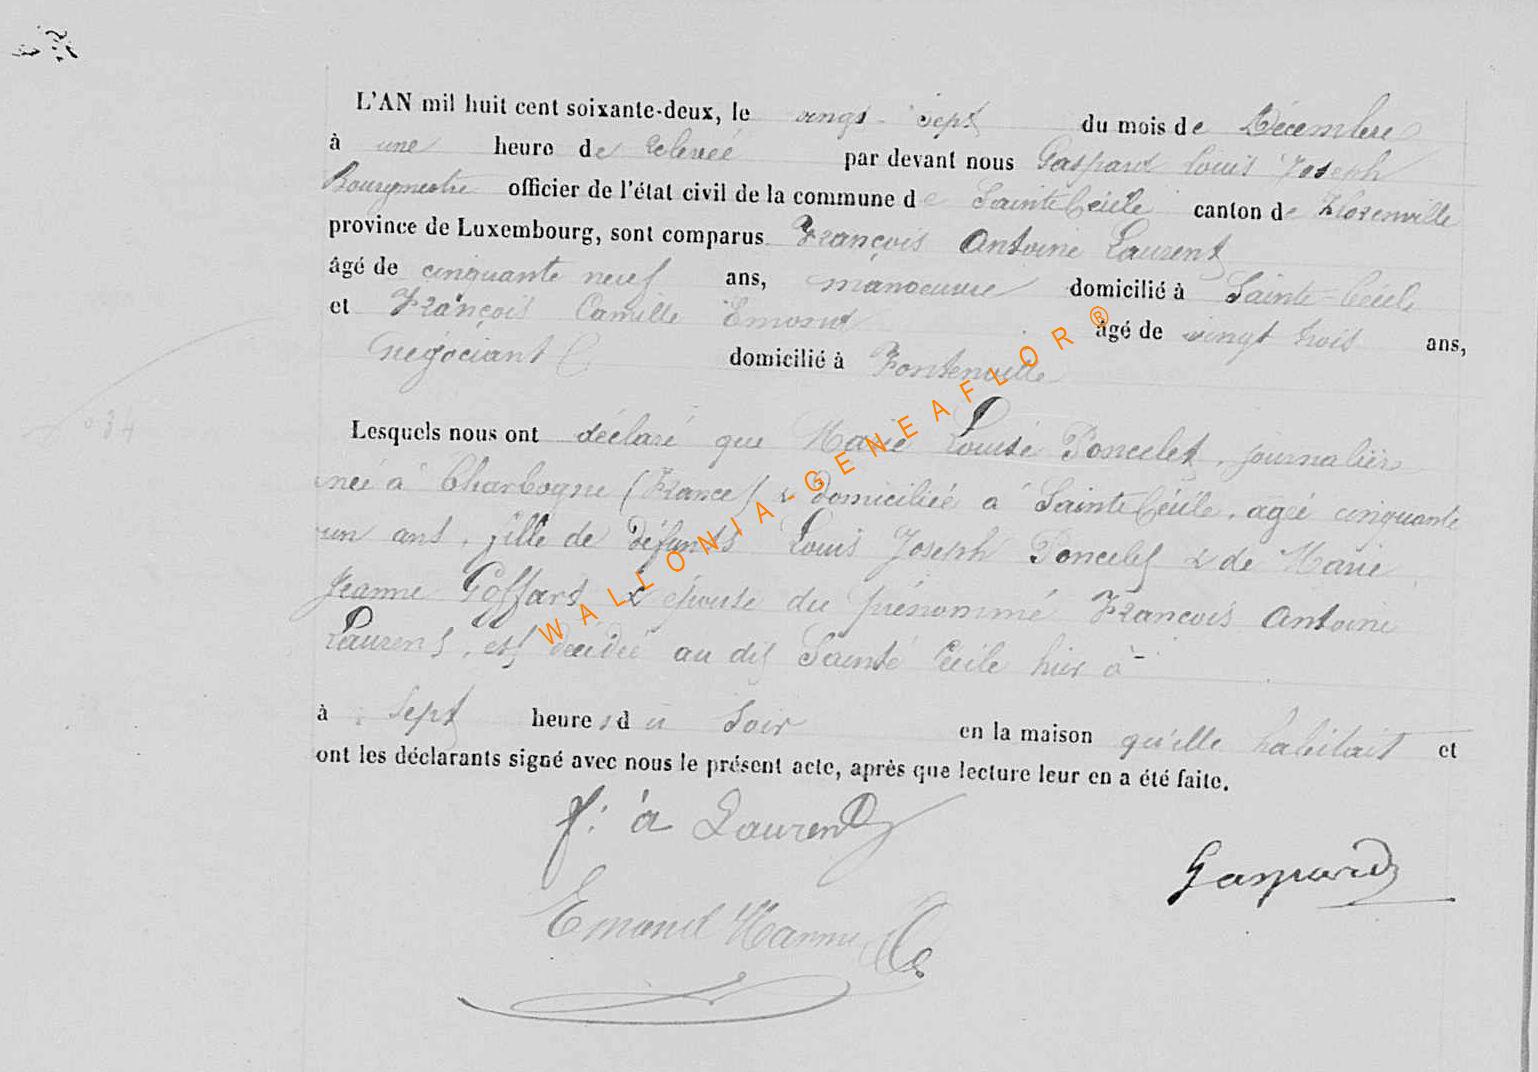 L'AN mil huit cent soixante-deux, le vingt-sept du mois de Décembre
à une heure de relevée par devant nous Gaspard Louis Joseph
Bourgmestre officier de l'état civil de la commune de Sainte Cécile canton de Florenville
province de Luxembourg, sont comparus François Antoine Laurent
âgé de cinquante neuf ans, manoeuvre domicilié à Sainte-Cécile
et François Camille Emond âgé de vingt trois ans,
négociant domicilié à Fontenoille
Lesquels nous ont déclaré que Marie Louise Poncelet, journalière
née à Charbogne (France) & domiciliée à Sainte Cécile, agée cinquante
un ans, fille de défunts Louis Joseph Poncelet & de Marie
Jeanne Goffart & épouse du prénommé François Antoine
Laurent, est décédée au dit Sainte Cécile hier à
à sept heures du soir en la maison qu'elle habitait et
ont les déclarants signé avec nous le présent acte, après que lecture leur en a été faite.
f: a Laurent
Gaspard
Emond
WALLONIA-GENEAFLOR®